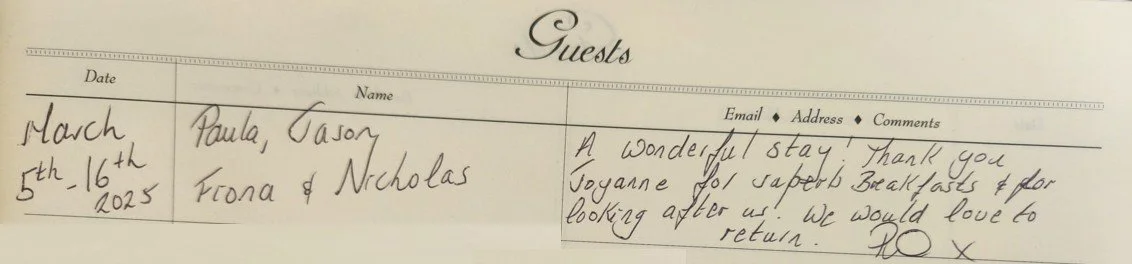 Guests
Date
Name
Email ♦ Address ♦ Comments
March
5th - 16th
2025
Paula, Jason
Fiona & Nicholas
A wonderful stay! Thank you
Joyanne for superb Breakfasts & for
looking after us. We would love to
return. x